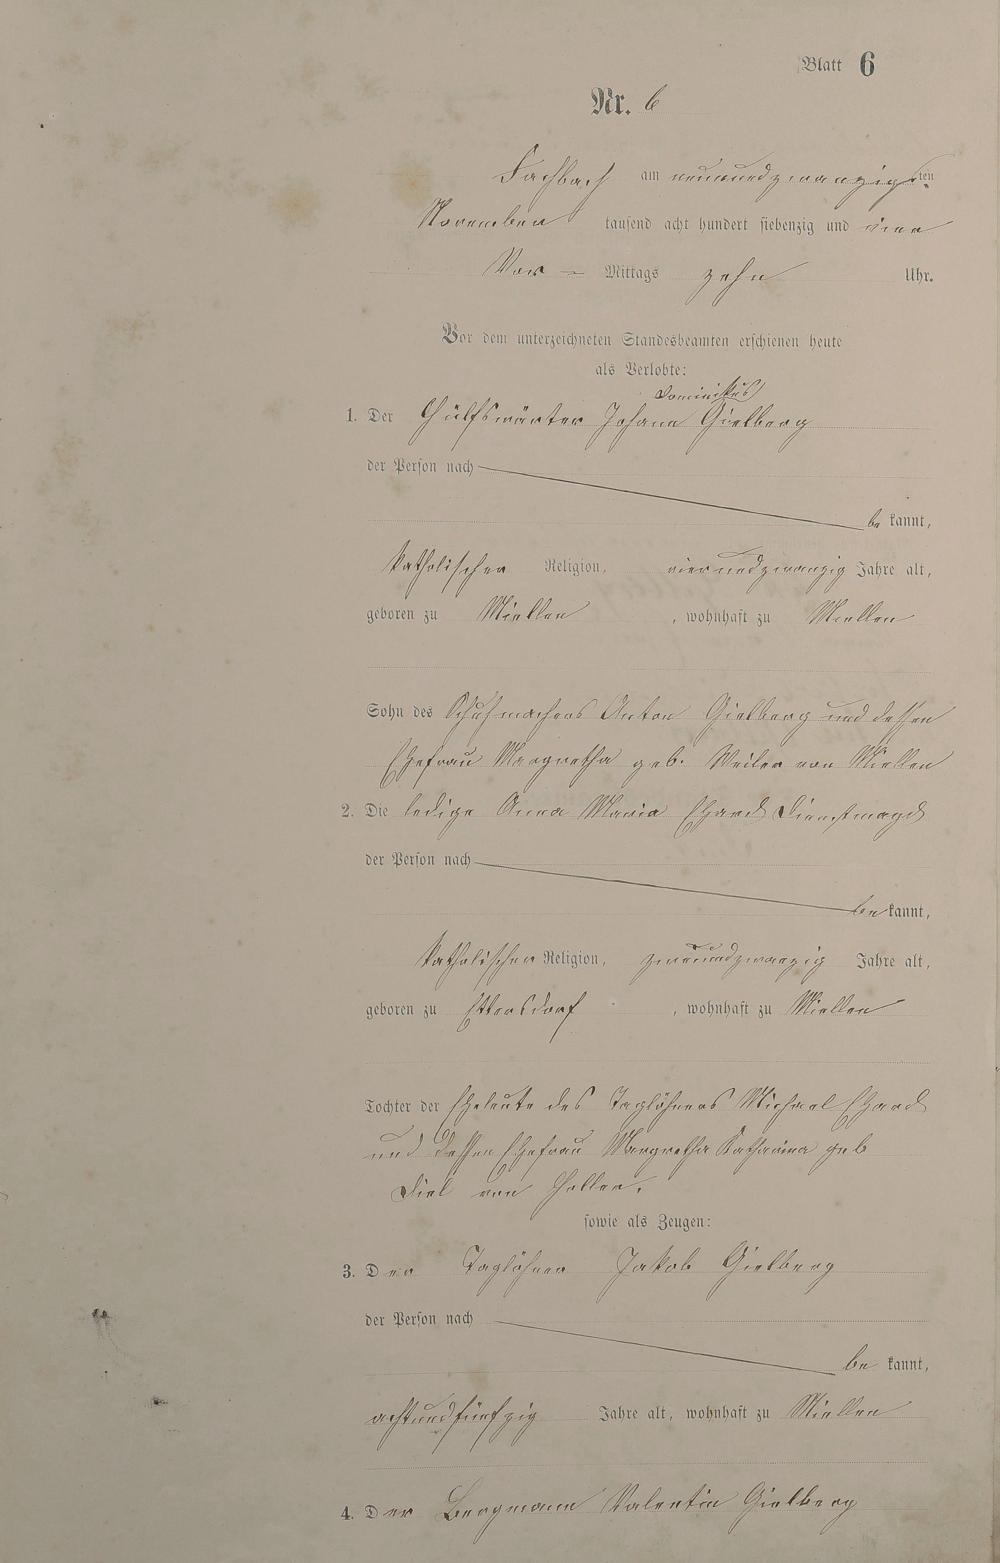 Blatt 6
Nr. 6
Fachbach am neunundzwanzigsten
November tausend acht hundert siebenzig und vier
Vor – Mittags zehn Uhr.
Vor dem unterzeichneten Standesbeamten erschienen heute
als Verlobte:
Dominikus
1. Der Hülfswärter Johann Gielberg
der Person nach
be kannt,
katholischer Religion, vierundzwanzig Jahre alt,
geboren zu Miellen , wohnhaft zu Miellen
Sohn des Schuhmachers Anton Gielberg und dessen
Ehefrau Margretha geb. Weiler von Miellen
2. Die ledige Anna Maria Dienstmagd
der Person nach
be kannt,
katholischer Religion, zweiundzwanzig Jahre alt,
geboren zu , wohnhaft zu Miellen
Tochter der Eheleute des Taglöhners Michael
und dessen Ehefrau Margretha Katharina geb
Diel von Holler.
sowie als Zeugen:
3. Der Taglöhner Jakob Gielberg
der Person nach
be kannt,
achtundfünfzig Jahre alt, wohnhaft zu Miellen
4. Der Bergmann Valentin Gielberg